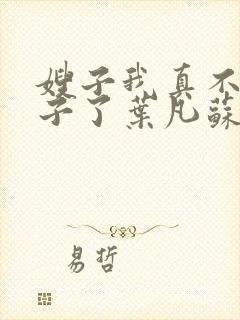 嫂子我真不
子了葉凡蘇
易哲